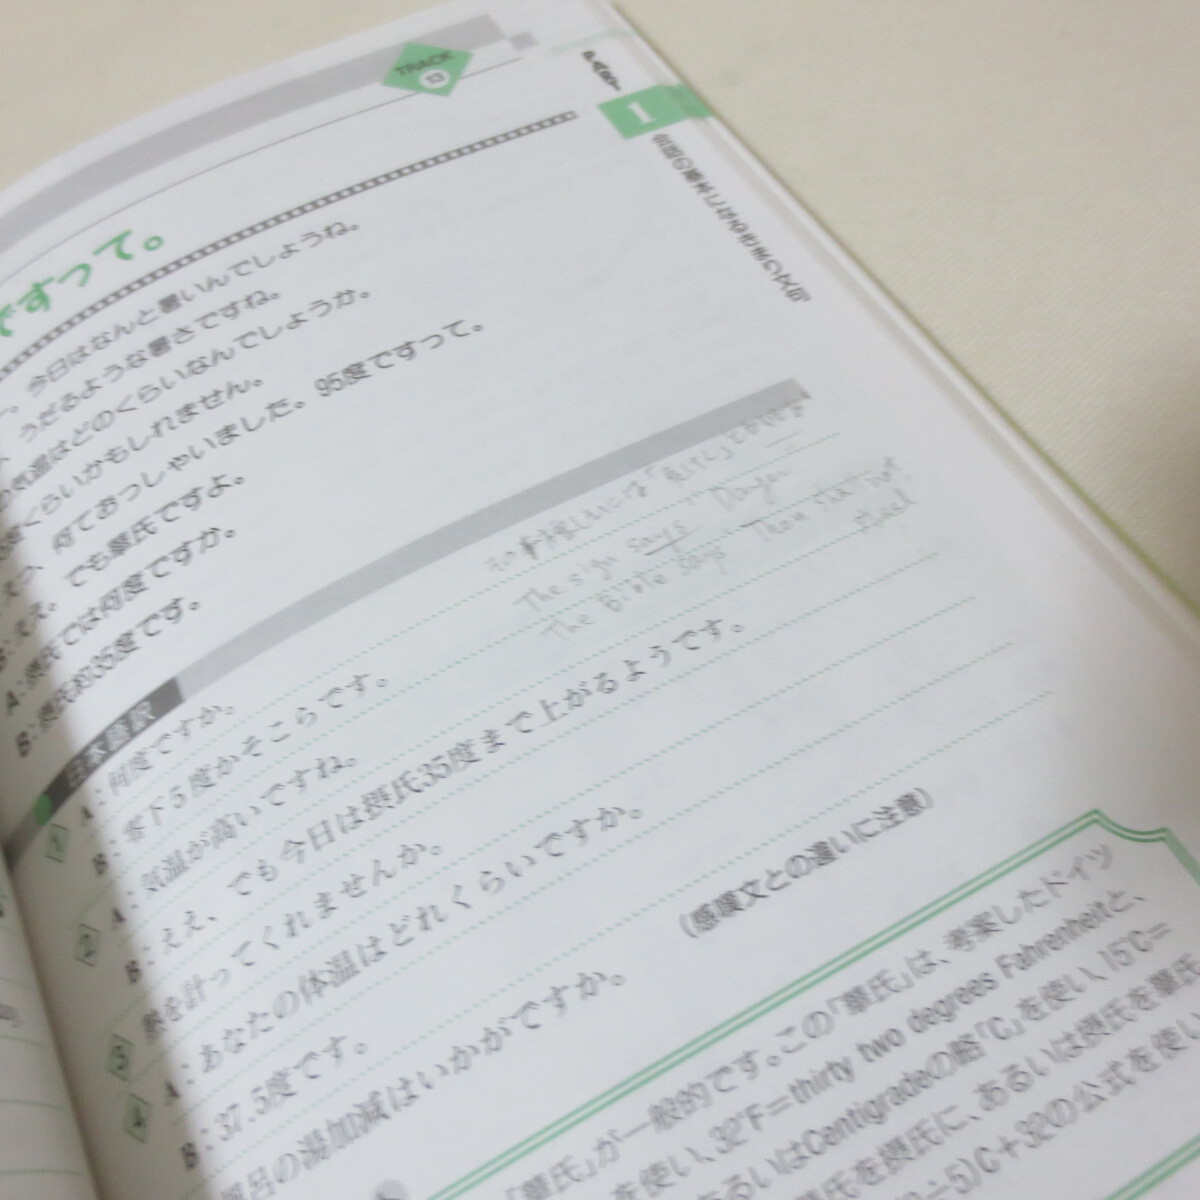 TRACK
13
PART
1
会話の幕あけはあいさつ人間
ですって。
今日はなんと暑いんでしょうね。
うだるような暑さですね。
気温はどのくらいなんでしょうか。
度くらいかもしれません。
何ておっしゃいました。95度ですって。
B：ええ。でも華氏ですよ。
A：摂氏では何度ですか。
B：摂氏約35度です。
日本語訳
The sign says Danger
The Bible says Thou shalt not
steal
1 A：何度ですか。
B：零下5度かそこらです。
2 A：気温が高いですね。
B：ええ、でも今日は摂氏35度まで上がるようです。
3 熱を計ってくれませんか。
4 A：あなたの体温はどれくらいですか。
B：37.5度です。
風呂の湯加減はいかがですか。
(感嘆文との違いに注意)
「華氏」が一般的です。この「華氏」は、考案したドイツ
を使い、32°F＝thirty two degrees Fahrenheitと、
あるいはCentigradeの略「C」を使い、15°C＝
氏を摂氏に、あるいは摂氏を華氏
÷5)C＋32の公式を使い